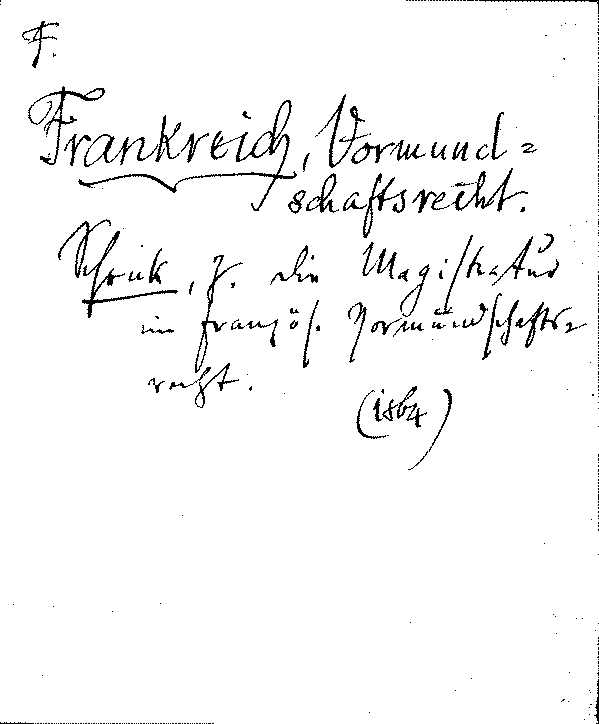 F.
Frankreich, Vormund=
schaftsrecht.
Schenk, J. die Magistratur
im französ. Vormundschafts=
recht.
(1864)